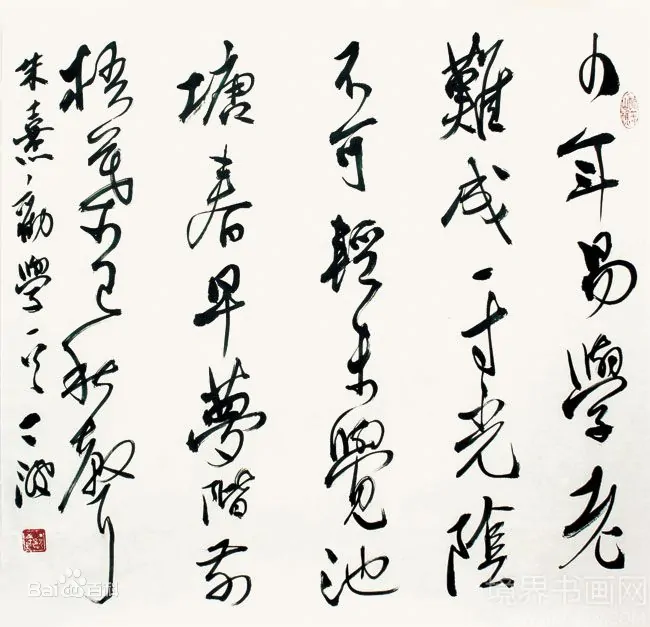 少年易學老
難成一寸光陰
不可輕未覺池
塘春早夢階前
梧葉已秋聲
朱熹勸學一
Bai百科
境界书画网